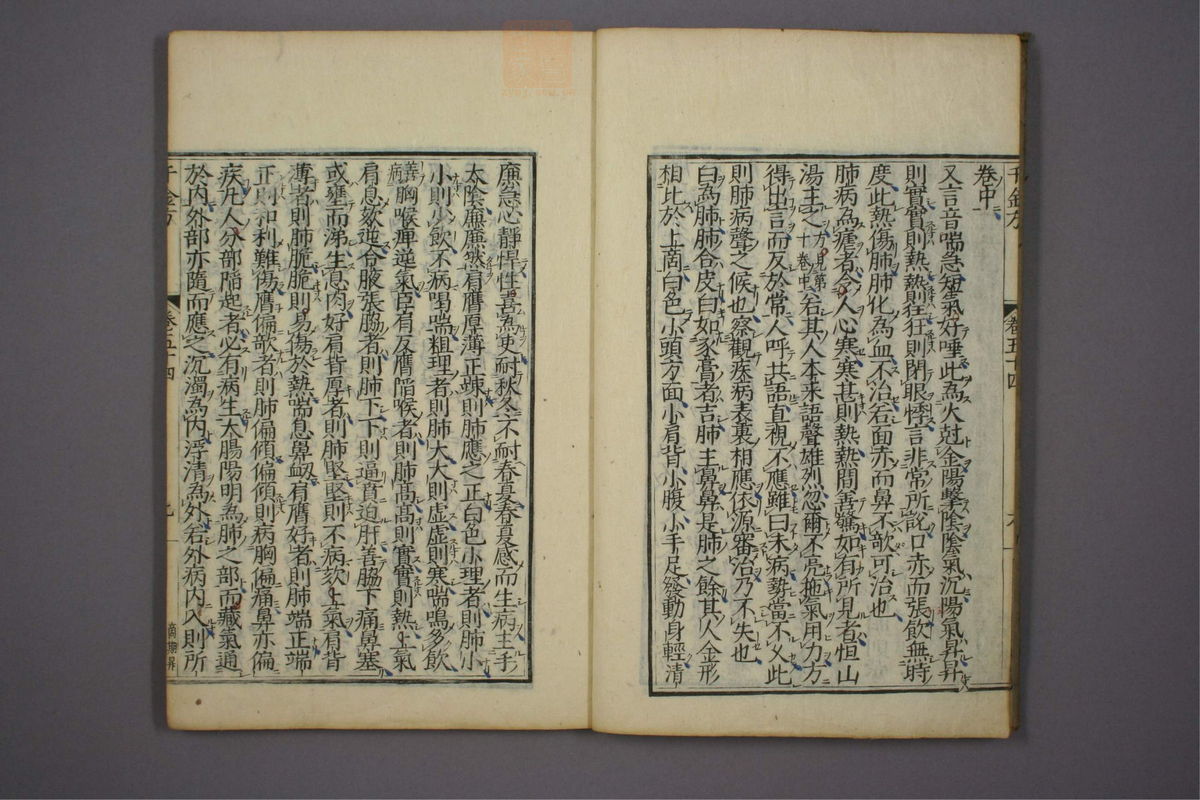 千金方 卷五十四
卷中
又言音喘急短氣好唾此為火尅金陽擊陰陰氣沉陽氣昇昇
則實實則熱熱則狂狂則閉眼悸言非常所說口赤而張飲無時
度此熱傷肺肺化為血不治若面赤而鼻不欹可治也
肺病為瘧者令人心寒寒甚則熱熱間善驚如有所見者恒山
湯主之方見第十卷中若其人本來語聲雄烈忽爾不亮拖氣用力方
得出言而反於常人呼共語直視不應雖曰未病勢當不久此
則肺病聲之候也察觀疾病表裏相應依源審治乃不失也
白為肺肺合皮白如豕膏者吉肺主鼻鼻是肺之餘其人金形
相比於上商白色小頭方面小肩背小腹小手足發動身輕清
廉急心靜悍性喜為吏耐秋冬不耐春夏春夏感而生病主手
太陰廉廉然肩膺厚薄正竦則肺應之正白色小理者則肺小
小則少飲不病喝喘粗理者則肺大大則虛虛則寒喘鳴多飲
善病胸喉痺逆氣臣肩反膺陷喉者則肺高高則實實則熱上氣
肩息欬迎合腋張脇者則肺下下則逼賁迫肝善脇下痛鼻塞
或壅而涕生息肉好肩背厚者則肺堅堅則不病欬上氣肩背
薄者則肺脆脆則易傷於熱喘息鼻衂肩膺好者則肺端正端
正則和利難傷膺偏欹者則肺偏傾偏傾則病胸偏痛鼻亦偏
疾凡人分部陷起者必有病生大腸陽明為肺之部而藏氣通
於內外部亦隨而應之沉濁為內浮清為外若外病內入則所
千金方 卷五十四 九